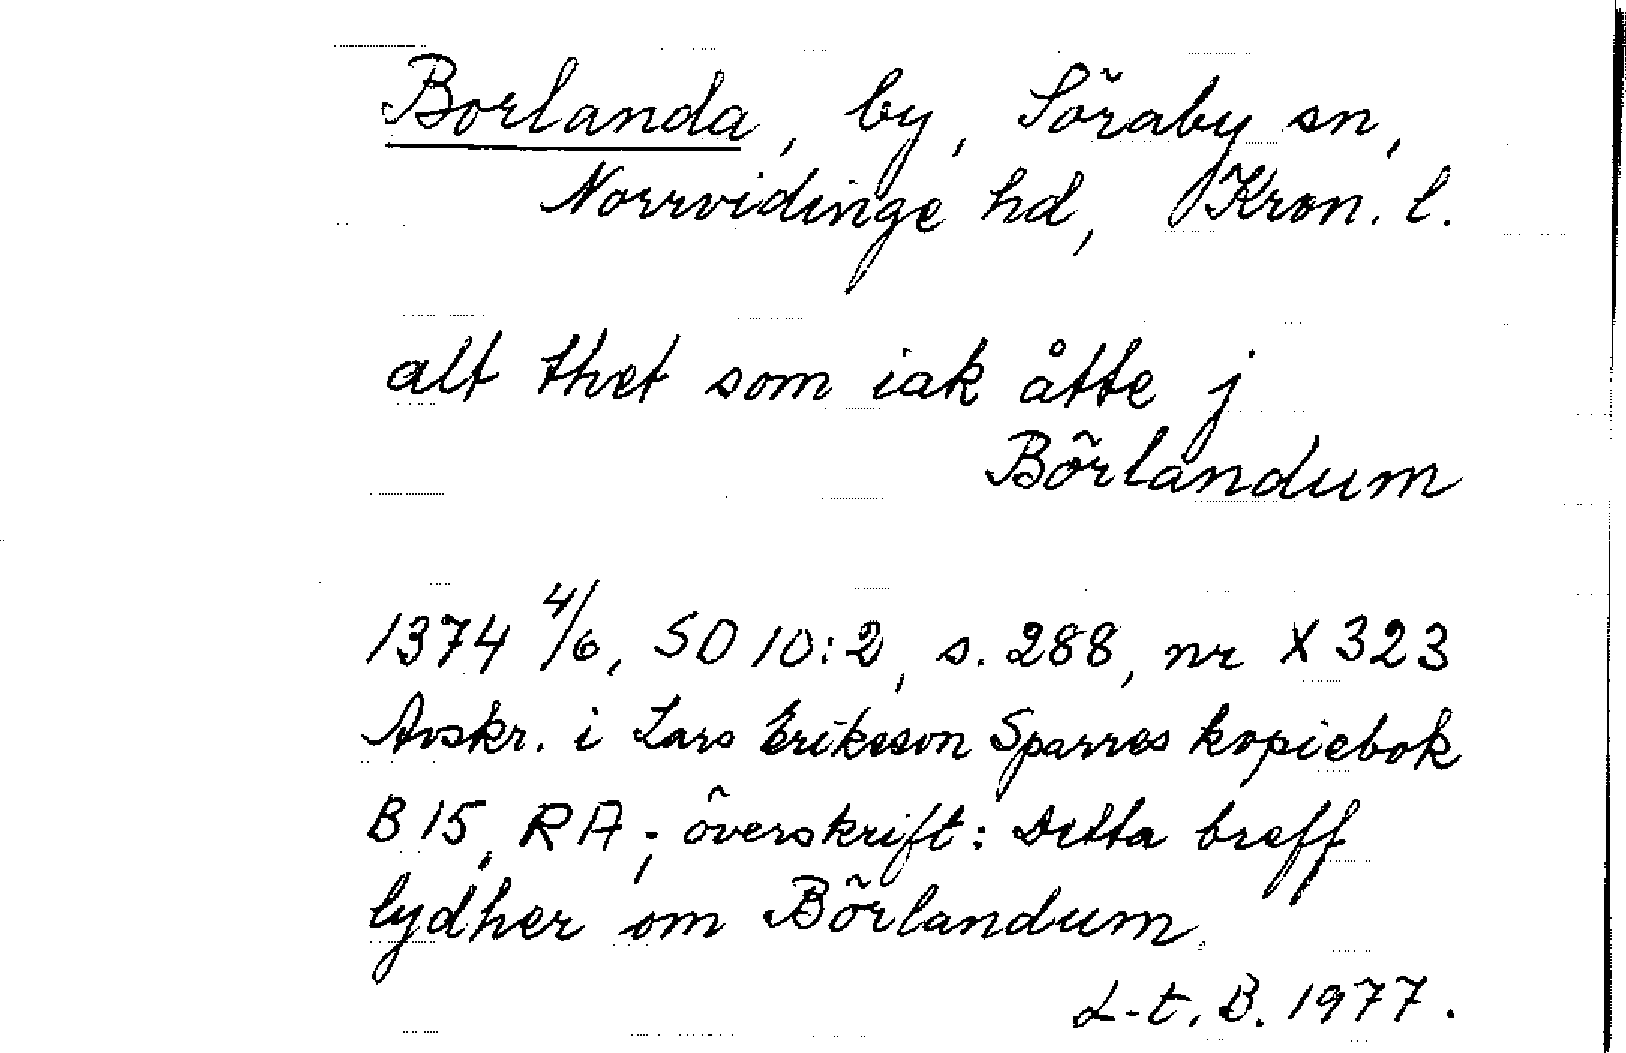 Borlanda, by, Söraby sn,
Norrvidinge hd, Kron. l.
alt thet som iak åtte j
Börlandum
1374 4/6, SD 10:2, s. 288, nr X 323
Avskr. i Lars Erikson Sparres kopiebok
B 15, RA; överskrift: Detta breff
lydher om Börlandum.
L-t. B. 1977.